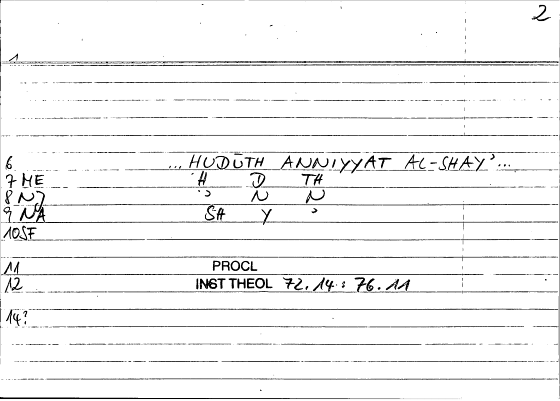 2
1
6 ... HUDŪTH ANNIYYAT AL-SHAY' ...
7 HE H D TH
8 NJ ' N N
9 NA SH Y '
10 SF
11 PROCL
12 INST THEOL 72.14 : 76.11
14?